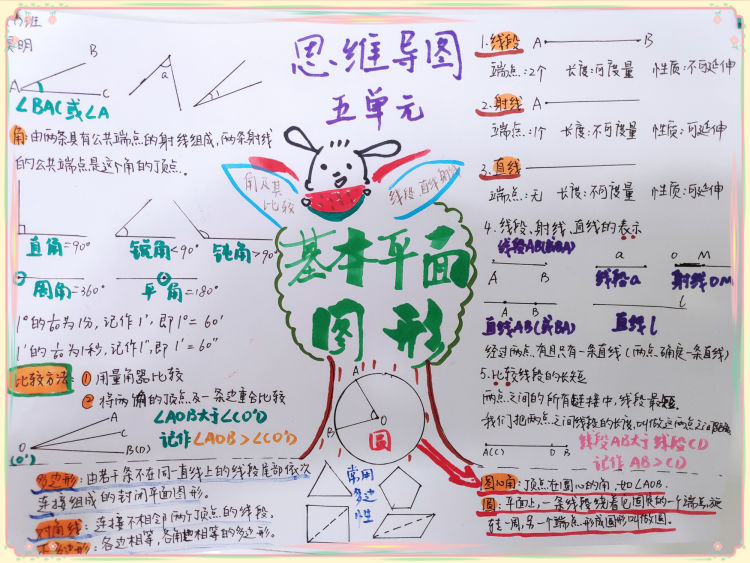 思维导图
五单元
B
A
C
∠BAC或∠A
a
角:由两条具有公共端点的射线组成,两条射线
的公共端点是这个角的顶点.
直角=90°
锐角<90°
钝角>90°
周角=360°
平角=180°
1°的1/60为1分,记作1′,即1°=60′
1′的1/60为1秒,记作1″,即1′=60″
比较方法:①用量角器比较
②将两角的顶点及一条边重合比较
A
C
O
(O′)
B(D)
∠AOB大于∠CO′D
记作∠AOB>∠CO′D
多边形:由若干条不在同一直线上的线段首尾依次
连接组成的封闭平面图形。
对角线:连接不相邻两个顶点的线段。
各边相等,各角也相等的多边形。
角及其
比较
线段直线射线
基本平面
图形
A
O
B
圆
常用
多边
性
1.线段 A B
端点:2个 长度:可度量 性质:不可延伸
2.射线 A
端点:1个 长度:不可度量 性质:可延伸
3.直线
端点:无 长度:不可度量 性质:可延伸
4.线段、射线、直线的表示
线段AB(或BA)
A B
a
线段a
O M
射线OM
A B
直线AB(或BA)
l
直线l
经过两点有且只有一条直线(两点确定一条直线)
5.比较线段的长短
两点之间的所有链接中,线段最短.
我们把两点之间线段的长度,叫做这两点之间距离
A(C) D B
线段AB大于线段CD
记作AB>CD
圆心角:顶点在圆心的角,如∠AOB.
圆:平面上,一条线段绕着它固定的一个端点旋
转一周,另一个端点形成图形叫做圆.